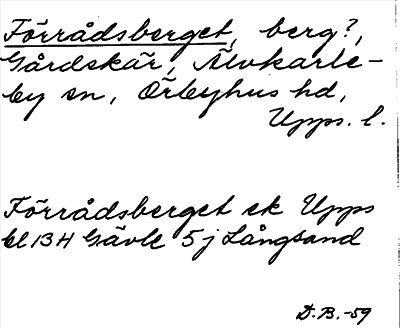 Förrådsberget, berg?,
Gårdskär, Älvkarle-
by sn, Örbyhus hd,
Upps. l.
Förrådsberget ek Upps
bl 13H Gävle 5 j Långsand
D.B.-59